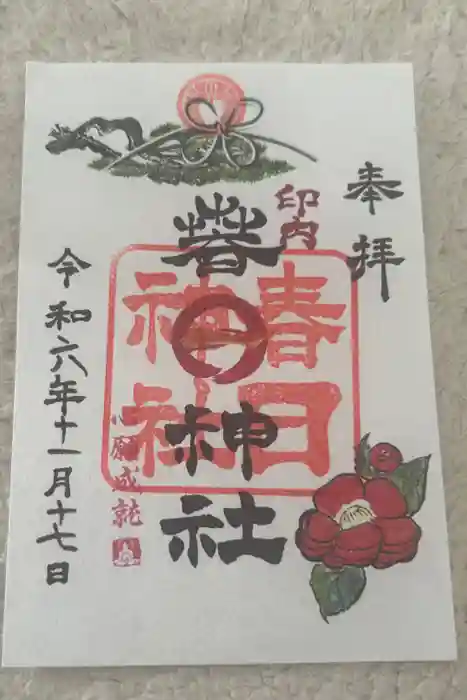 奉拝
印内
春日神社
春日神社
心願成就
令和六年十一月十七日